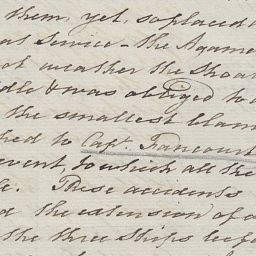 them, yet, so placed
Service - the Agame
not weather the Shoa
& was obliged to
the smallest blam
to Capt. Fancourt
event, to which all the
These accidents
the extension of
the three Ships bef